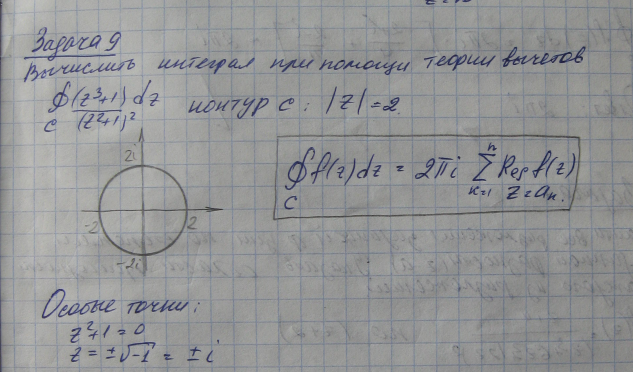 Задача 9
Вычислить интеграл при помощи теории вычетов
∮ (z³+1) dz / (z²+1)² контур c: |z|=2.
c
2i
-2 2
-2i
∮ f(z)dz = 2πi ∑ Res f(z)
c n k=1 z=aₖ.
Особые точки:
z²+1=0
z = ±√-1 = ± i